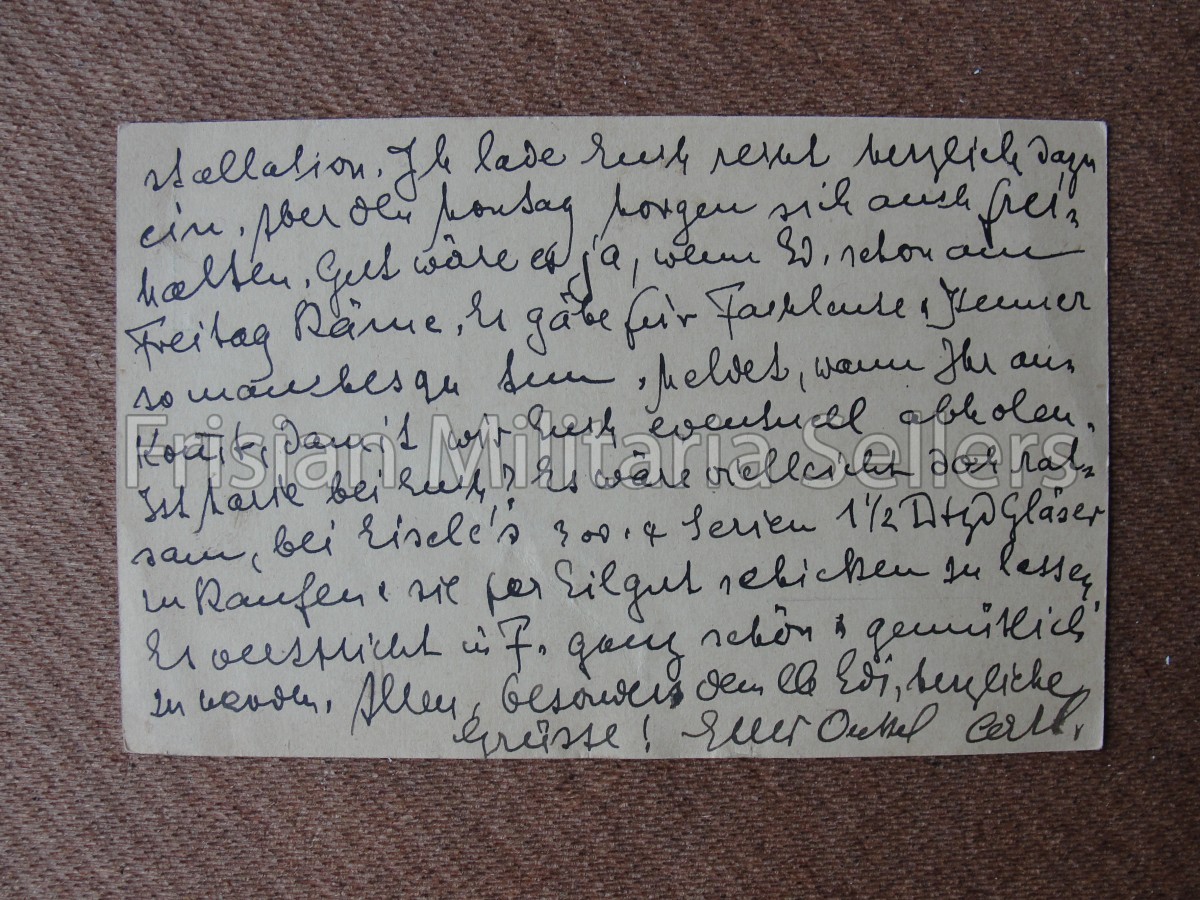 stallation. Ich lade Euch recht herzlich dazu
ein. Aber den Montag Morgen sich auch frei-
halten. Gut wäre es ja, wenn Ed. schon am
Freitag käme. Es gäbe für Fachleute u. Kenner
so manches zu tun. Meldet, wann Ihr an-
kommt, damit wir Euch eventuell abholen.
Ist bei Euch? Es wäre vielleicht doch rat-
sam, bei Eisele's 3 od. 4 Serien 1 1/2 Dtzd Gläser
zu kaufen u. sie per Eilgut schicken zu lassen
Es verspricht in F. ganz schön u. gemütlich
zu werden. Allen, besonders dem lb Edi, herzliche
Grüsse! Euer Onkel Carl.
Frisian Militaria Sellers